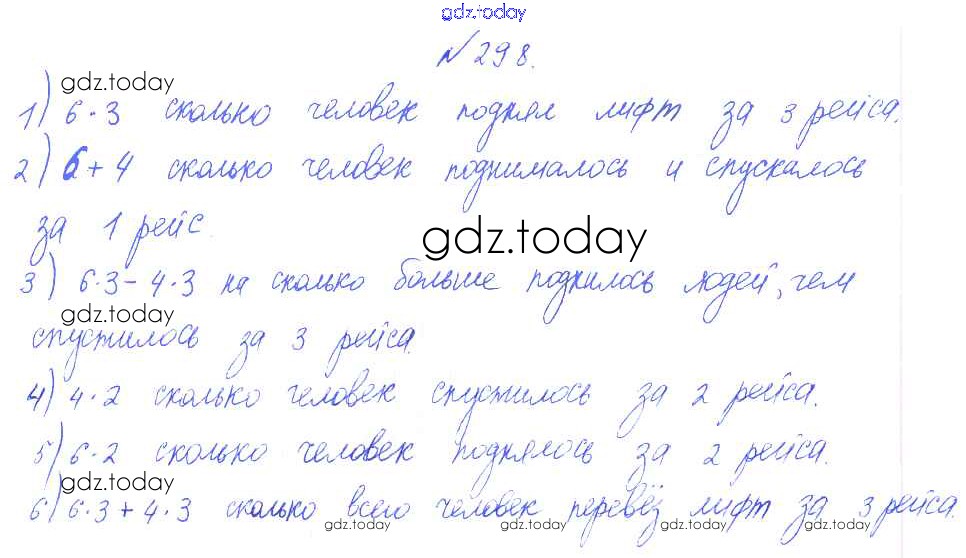 gdz.today
№298.
gdz.today
1) 6·3 сколько человек поднял лифт за 3 рейса.
2) 6+4 сколько человек поднималось и спускалось
за 1 рейс.
gdz.today
3) 6·3-4·3 на сколько больше поднилось людей, чем
gdz.today
спустилось за 3 рейса.
4) 4·2 сколько человек спустилось за 2 рейса.
5) 6·2 сколько человек поднялось за 2 рейса.
gdz.today
6) 6·3+4·3 сколько всего человек перевёз лифт за 3 рейса.
gdz.today gdz.today gdz.today gdz.today